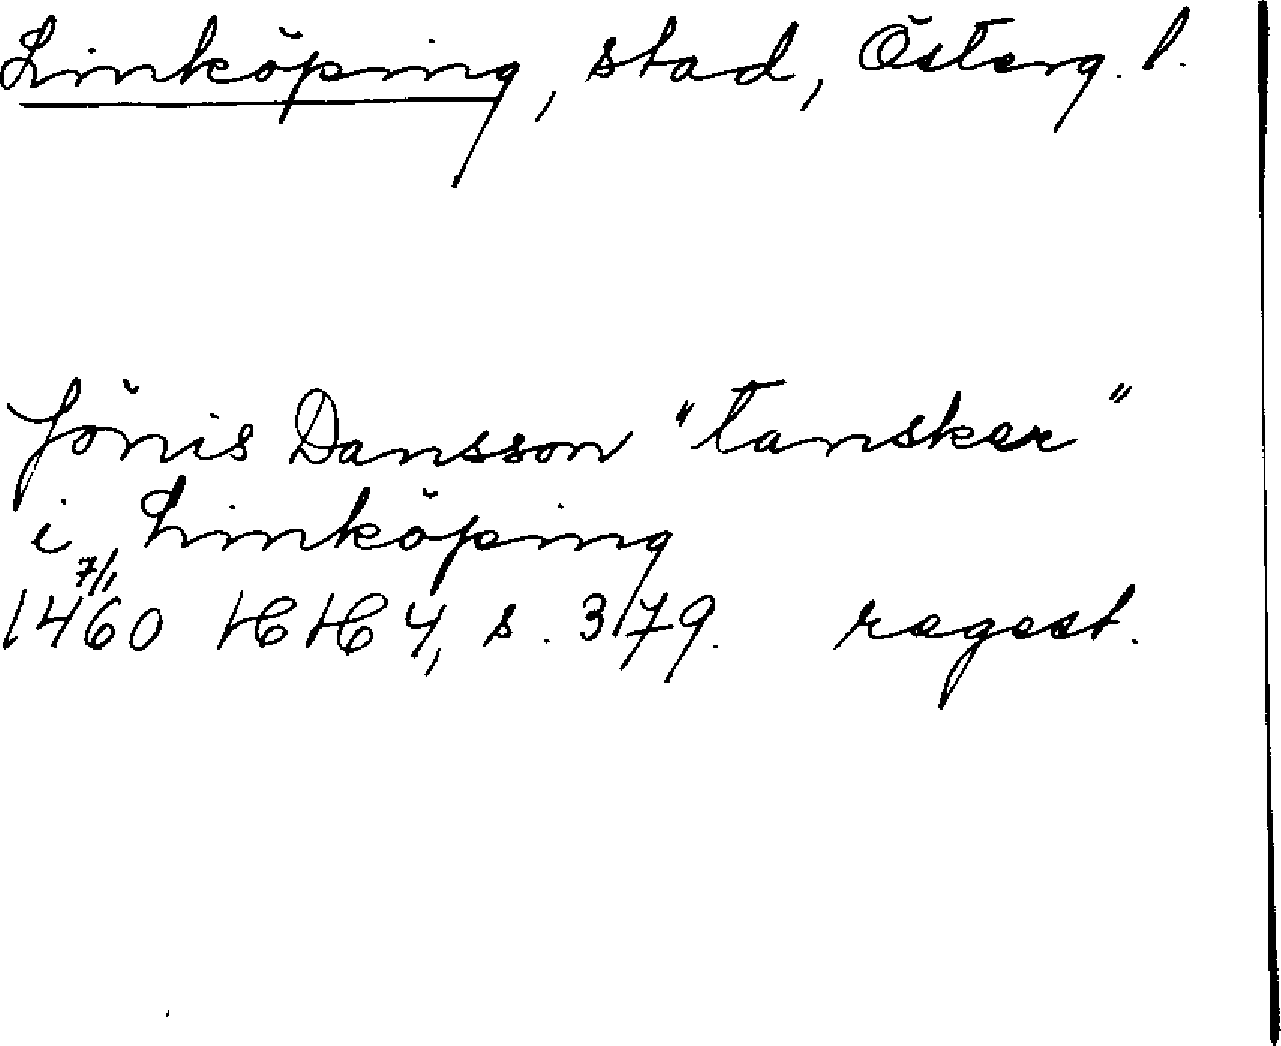 Linköping, stad, Österg. l.
Jönis Dansson "Tansker"
i Linköping
1460 7/1 HH 4, s. 379. regest.